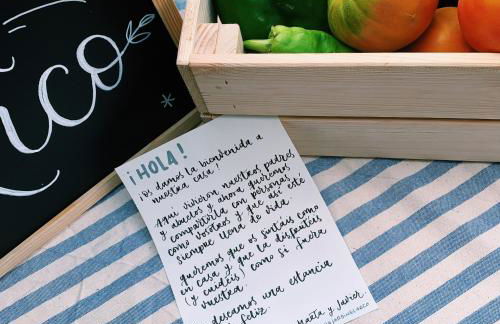 ico
¡HOLA!
¡os damos la bienvenida a
nuestra casa!
Aquí vivieron nuestros padres
y abuelos y ahora queremos
compartirla con personas
como vosotros y que así esté
siempre llena de vida.
queremos que os sintáis como
en casa y que la disfrutéis
(y cuidéis) como si fuera
vuestra.
deseamos una estancia
feliz.
Marta y Javier.